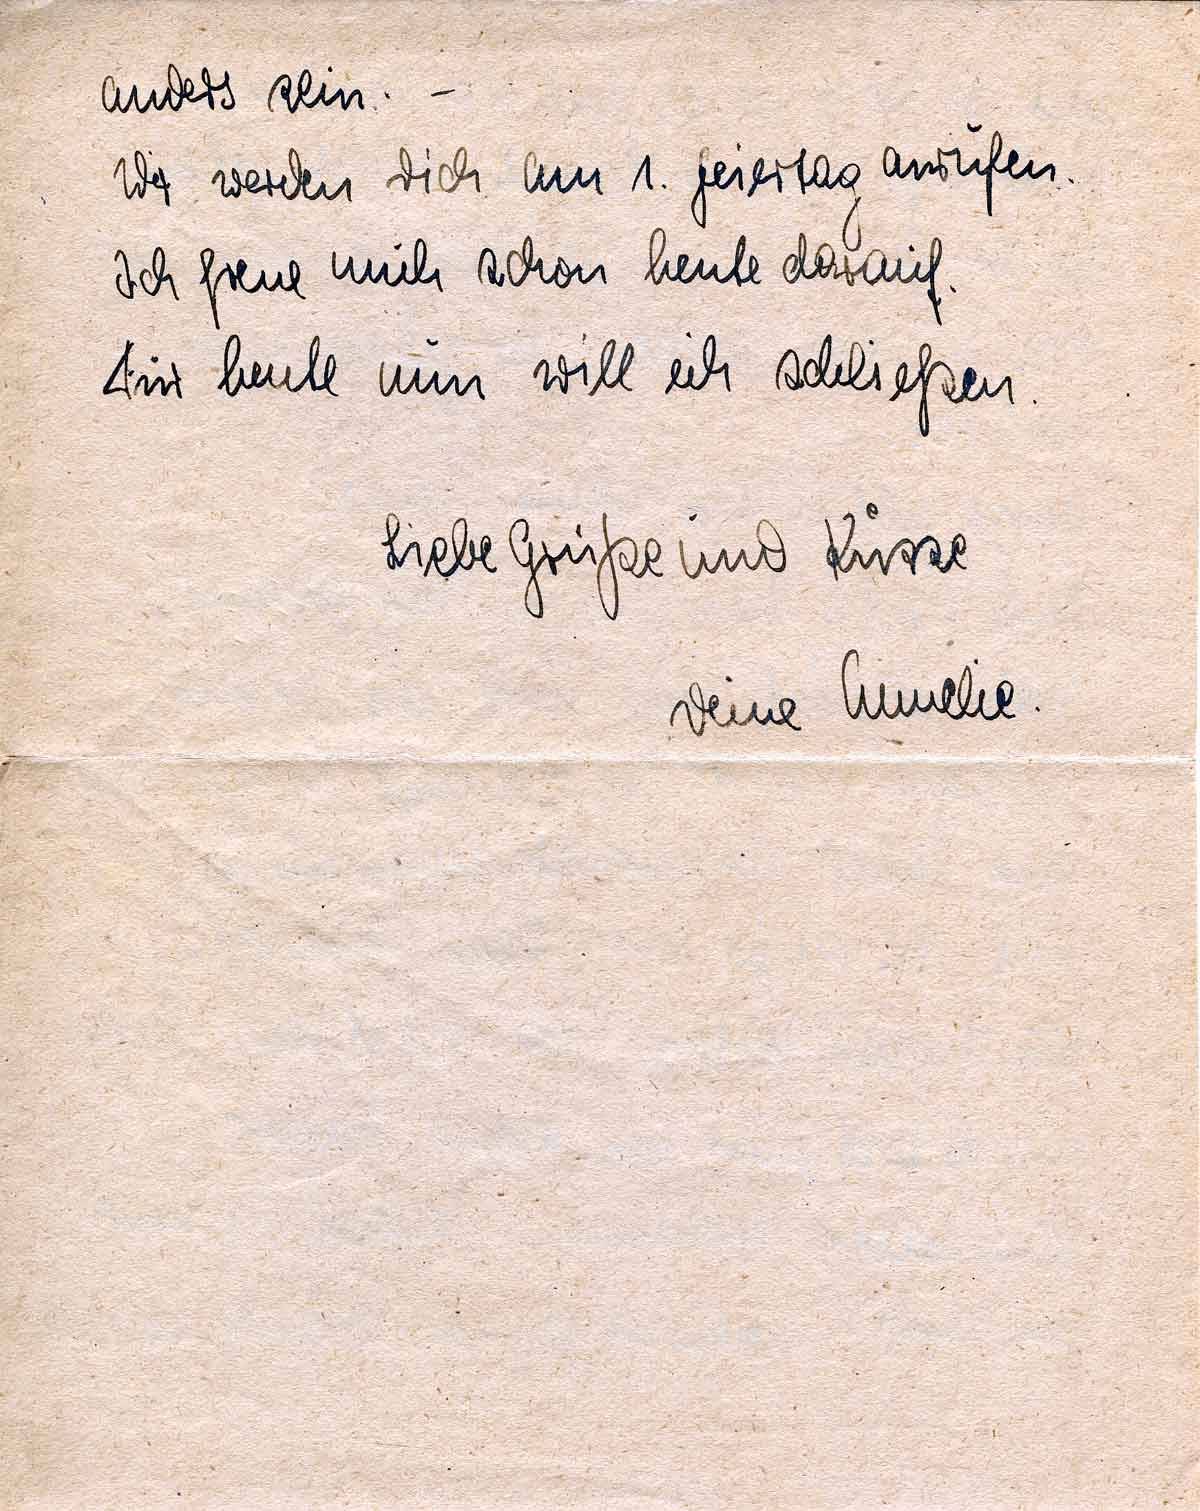 anders sein. –
Wir werden dich am 1. Feiertag anrufen.
Ich freue mich schon heute darauf.
Für heute nun will ich schließen.
Liebe Grüße und Küsse
Deine Annelie.